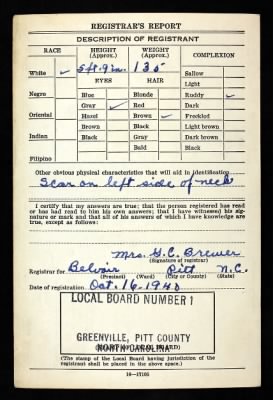 REGISTRAR'S REPORT
DESCRIPTION OF REGISTRANT
RACE HEIGHT (Approx.) WEIGHT (Approx.) COMPLEXION
White ✓ 5 ft. 9 in. 135 Sallow
EYES HAIR Light
Negro Blue Blonde Ruddy ✓
Gray ✓ Red Dark
Oriental Hazel Brown ✓ Freckled
Brown Black Light brown
Indian Black Gray Dark brown
Bald Black
Filipino
Other obvious physical characteristics that will aid in identification
Scar on left side of neck
I certify that my answers are true; that the person registered has read
or has had read to him his own answers; that I have witnessed his sig-
nature or mark and that all of his answers of which I have knowledge are
true, except as follows:
Mrs. G. C. Brewer
(Signature of registrar)
Registrar for Belvoir Pitt N.C.
(Precinct) (Ward) (City or County) (State)
Date of registration Oct. 16, 1940
LOCAL BOARD NUMBER 1
GREENVILLE, PITT COUNTY
NORTH CAROLINA
(STAMP OF LOCAL BOARD)
(The stamp of the Local Board having jurisdiction of the
registrant shall be placed in the above space.)
16—17105